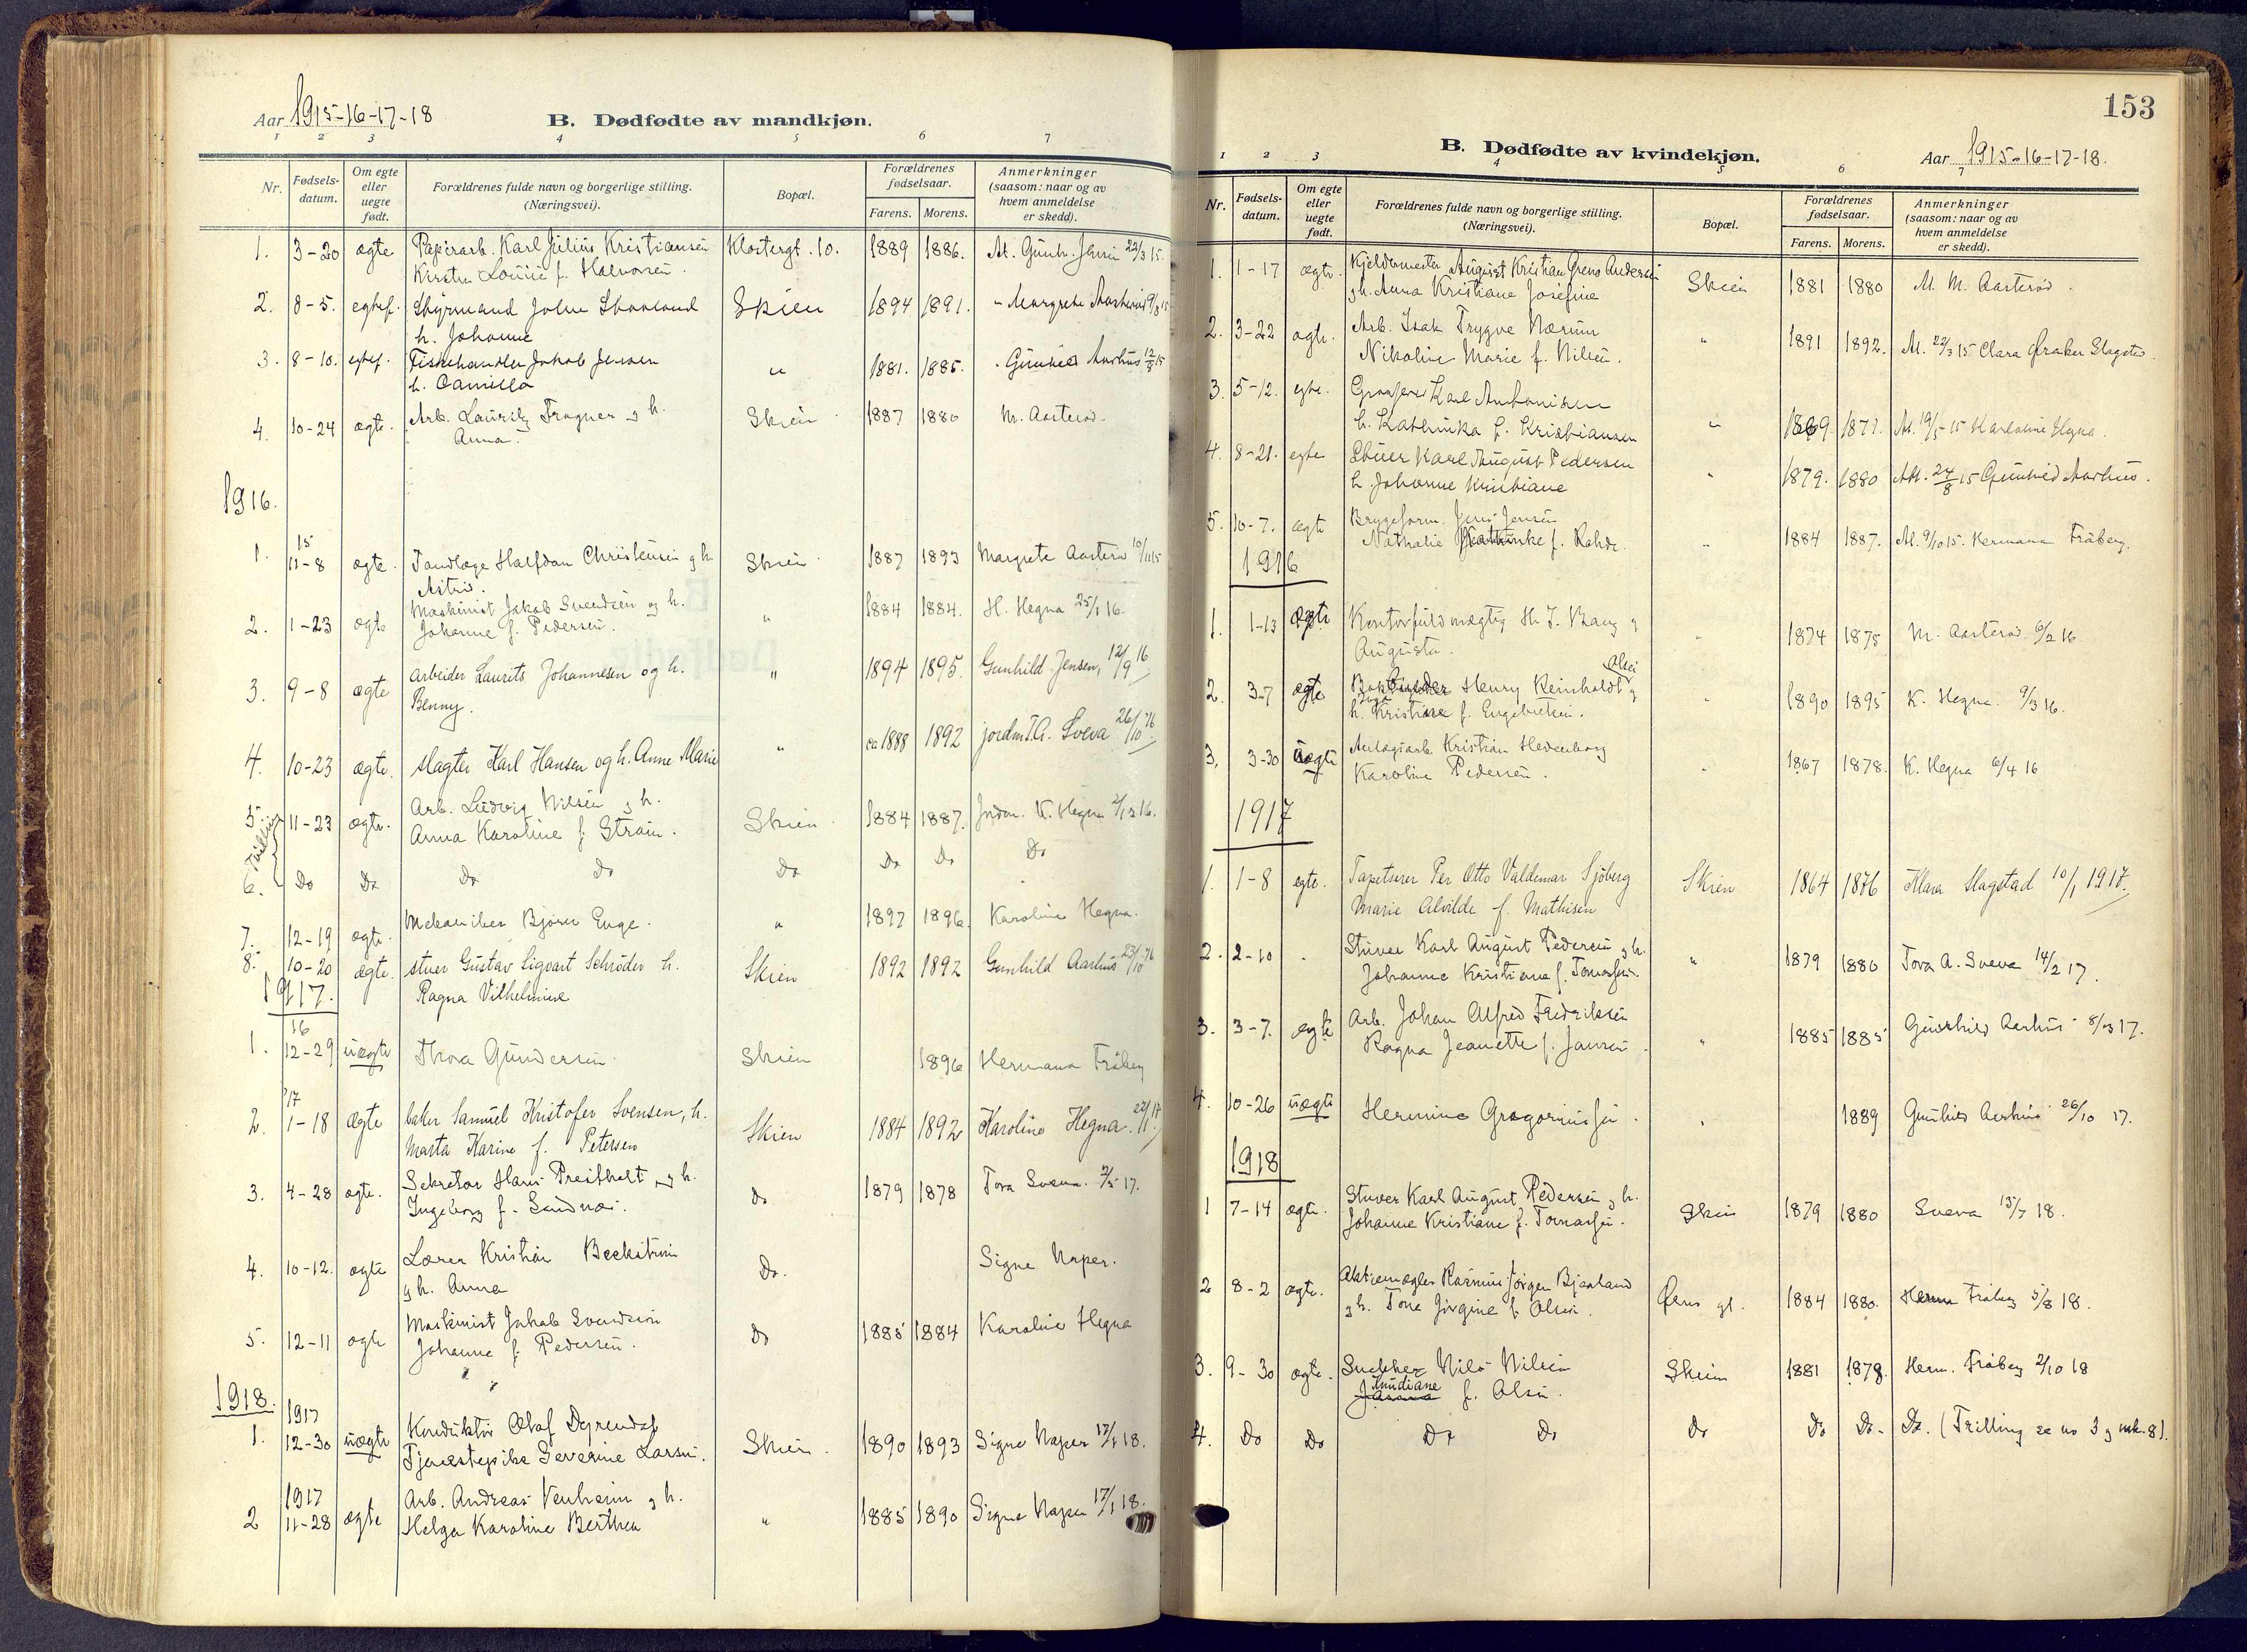 Aar 1915-16-17-18
B. Dødfødte av mandkjøn.
1 2 3 4 5 6 7
Nr. Fødselsdatum. Om egte eller uegte født. Forældrenes fulde navn og borgerlige stilling. (Næringsvei). Bopæl. Forældrenes fødselsaar. Farens. Morens. Anmerkninger (saasom: naar og av hvem anmeldelse er skedd).
1. 3-20 ægte Papirarb. Karl Julius Kristiansen Klostergt. 10. 1889 1886. At. Gunh. Jensen 22/3 15.
Kirsten Louise f. Halvorsen.
2. 8-5. egtef. Styrmand Johan Skien 1894 1891. " Margrete Aasterød 9/8 15
h. Johanne
3. 8-10. egtef. Fiskehandler Jakob Jensen " 1881. 1885. Gunhild Aarhus 12/8 15
h. Camilla
4. 10-24 ægte. Arb. Lauritz Fragner og h. Skien 1887 1880 M. Aasterød.
Anna.
1916.
15
1. 11-8 ægte. Tandlæge Halfdan Christensen og h. Skien 1887 1893 Margrete Aasterød 10/11 15
Astrid.
2. 1-23 ægte Maskinist Jakob Svendsen og h. " 1884 1884. H. Hegna 25/1 16.
Johanne f. Pedersen.
3. 9-8 ægte Arbeider Laurits Johannesen og h. " 1894 1895. Gunhild Jensen, 12/9 16
Benny.
4. 10-23 ægte. slagter Karl Hansen og h. Anne Marie " ca 1888 1892 jordm. T.A. Sveva 26/10 '16.
5. Tvilling 11-23 ægte. Arb. Ludvig Nilsen og h. Skien 1884 1887. Jordm. K. Hegna 2/12 16.
Anna Karoline f. Strøm.
6. Do Do Do Do Do Do Do Do
7. 12-19 ægte. Mekaniker Bjørn Enge. " 1897 1896. Karoline Hegna.
8. 10-20 ægte. stuer Gustav Sigvart Schrøder h. Skien 1892 1892 Gunhild Aarhus 23/10 '16
Ragna Vilhelmine
1917.
16
1. 12-29 uægte Thora Gundersen. Skien 1896 Hermana Fråberg
'17
2. 1-18 Ægte baker Samuel Kristofer Svensen, h. Skien 1884 1892 Karoline Hegna. 22/1 17.
Marta Karine f. Petersen
3. 4-28 ægte. Sekretær Hans Prestholt og h. Do 1879 1878 Tora Sveva. 2/5 17.
Ingeborg f.
4. 10-12. ægte Lærer Kristian Beckstrøm Do. Signe Naper.
og h. Anna
5. 12-11 ægte Maskinist Jakob Svendsen Do 1885 1884 Karoline Hegna
Johanne f. Pedersen.
1918.
1917
1. 12-30 uægte Konduktør Olaf Skien. 1890 1893 Signe Naper 17/1 18.
Tjenestepike Severine Larsen.
1917
2 11-28 ægte Arb. Andreas Venheim og h. " 1885 1890 Signe Naper 17/1 18.
Helga Karoline Berthea
153
B. Dødfødte av kvindekjøn.
Aar 1915-16-17-18.
1 2 3 4 5 6 7
Nr. Fødselsdatum. Om egte eller uegte født. Forældrenes fulde navn og borgerlige stilling. (Næringsvei). Bopæl. Forældrenes fødselsaar. Farens. Morens. Anmerkninger (saasom: naar og av hvem anmeldelse er skedd).
1. 1-17 ægte. Kjeldermester August Kristian Grens Andersen Skien 1881 1880 At. M. Aasterød.
og h. Anna Kristiane Josefine
2. 3-22 ægte. Arb. Isak Trygve Nærum " 1891 1892. At. 22/3 15 Clara Slagstad.
Nikoline Marie f. Nilsen.
3. 5-12. egte. Karl Anthonisen
h. Kathinka f. Kristiansen " 1869. 1871. At. 19/5 - 15 Karoline Hegna.
4. 8-21. egte Stuer Karl August Pedersen
h. Johanne Kristiane " 1879. 1880 Att. 24/8 15 Gunhild Aarhus.
5. 10-7. ægte Bryggeform. Jens Jensen
Nathalie Kathinke f. Rohde. " 1884 1887. At. 9/10 15. Hermana Fråberg.
1916
1. 1-13 Ægte Kontorfuldmægtig H. J. Krang og " 1874 1875 M. Aasterød 6/2 16.
Augusta.
2. 3-7 Ægte Bokbinder Henry Reinholdt Olsen og " 1890 1895 K. Hegna. 9/3 16.
h. Inga Kristine f. Engebretsen.
3. 3-30 Uægte Anlægsarb. Kristian Hedenborg " 1867 1878. K. Hegna 6/4 16
Karoline Pedersen.
1917
1. 1-8 egte. Tapetserer Per Otto Valdemar Sjöberg Skien 1864 1876 Klara Slagstad 10/1 1917.
Marie Alvilde f. Mathisen
2. 2-10 . Stuver Karl August Pedersen og h. " 1879 1880 Tora A. Sveva 14/2 17.
Johanne Kristiane f. Tomassen.
3. 3-7. ægte Arb. Johan Alfred Fredriksen " 1885 1885 Gunhild Aarhus 8/3 17.
Ragna Jeanette f. Jansen
4. 10-26 uægte Hermine Gregoriussen. " 1889 Gunhild Aarhus 26/10 17.
1918
1 7-14 ægte. Stuver Karl August Pedersen og h. Skien 1879 1880 Sveva 15/7 18.
Johanne Kristiane f. Tomassen.
2 8-2 ægte. Aktiemægler Rasmus Jörgen Bjaaland gt. 1884 1880. Herm Fråberg 5/8 18.
og h. Tone Jörgine f. Olsen.
3. 9-30 ægte. Snekker Nils Nilsen Skien 1881 1878. Herm. Fråberg 2/10 18
Gundiane f. Olsen.
4. Do Do Do Do Do Do Do. Do. (Trilling se no 3 og mk. 8).